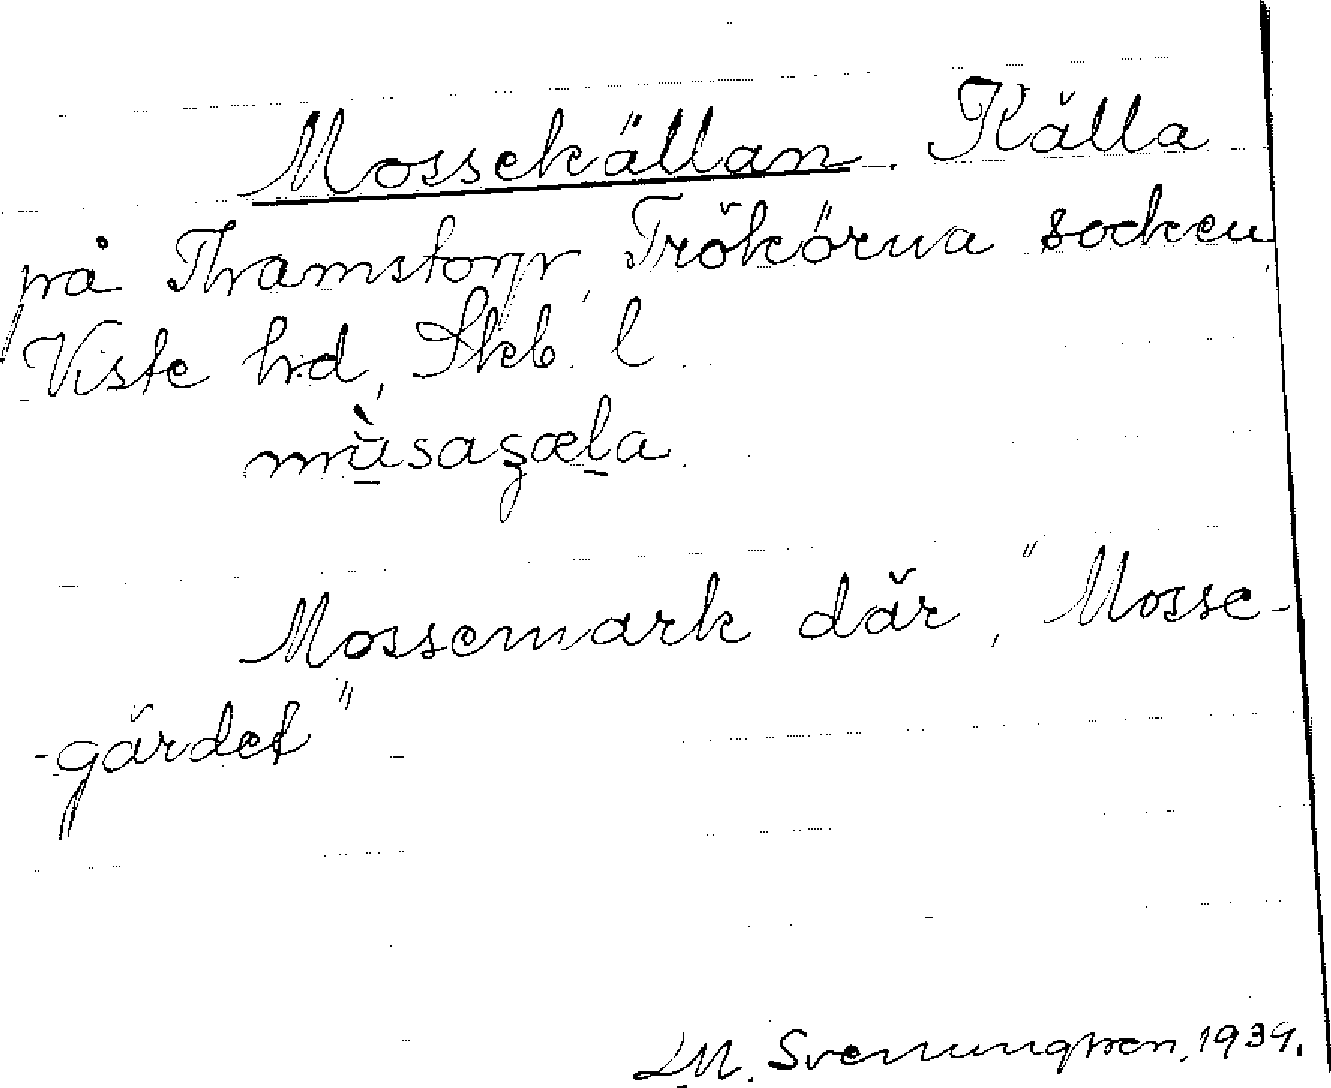 Mossekällan. Källa
på Thamstorp, Trökörna socken,
Viste hd, Skb. l.
mùsaʒæla.
Mossemark där, "Mosse-
-gärdet"
LM. Svenungsson, 1934.